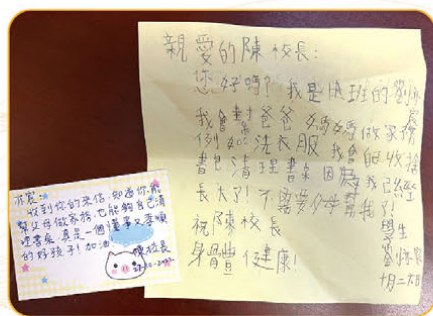 親愛的陳校長:
您好嗎?我是 班的劉
我會幫爸爸媽媽做家務
例如洗衣服我會自己收拾
書包清理書桌因為我已經
長大了!不需要父母幫我了!
祝陳校長
身體健康!
學生
劉
十月二六日
收到你的來信,知道你能
幫父母做家務,也能夠自己清
理書桌,真是一個懂事又孝順
的好孩子!加油!
陳校長